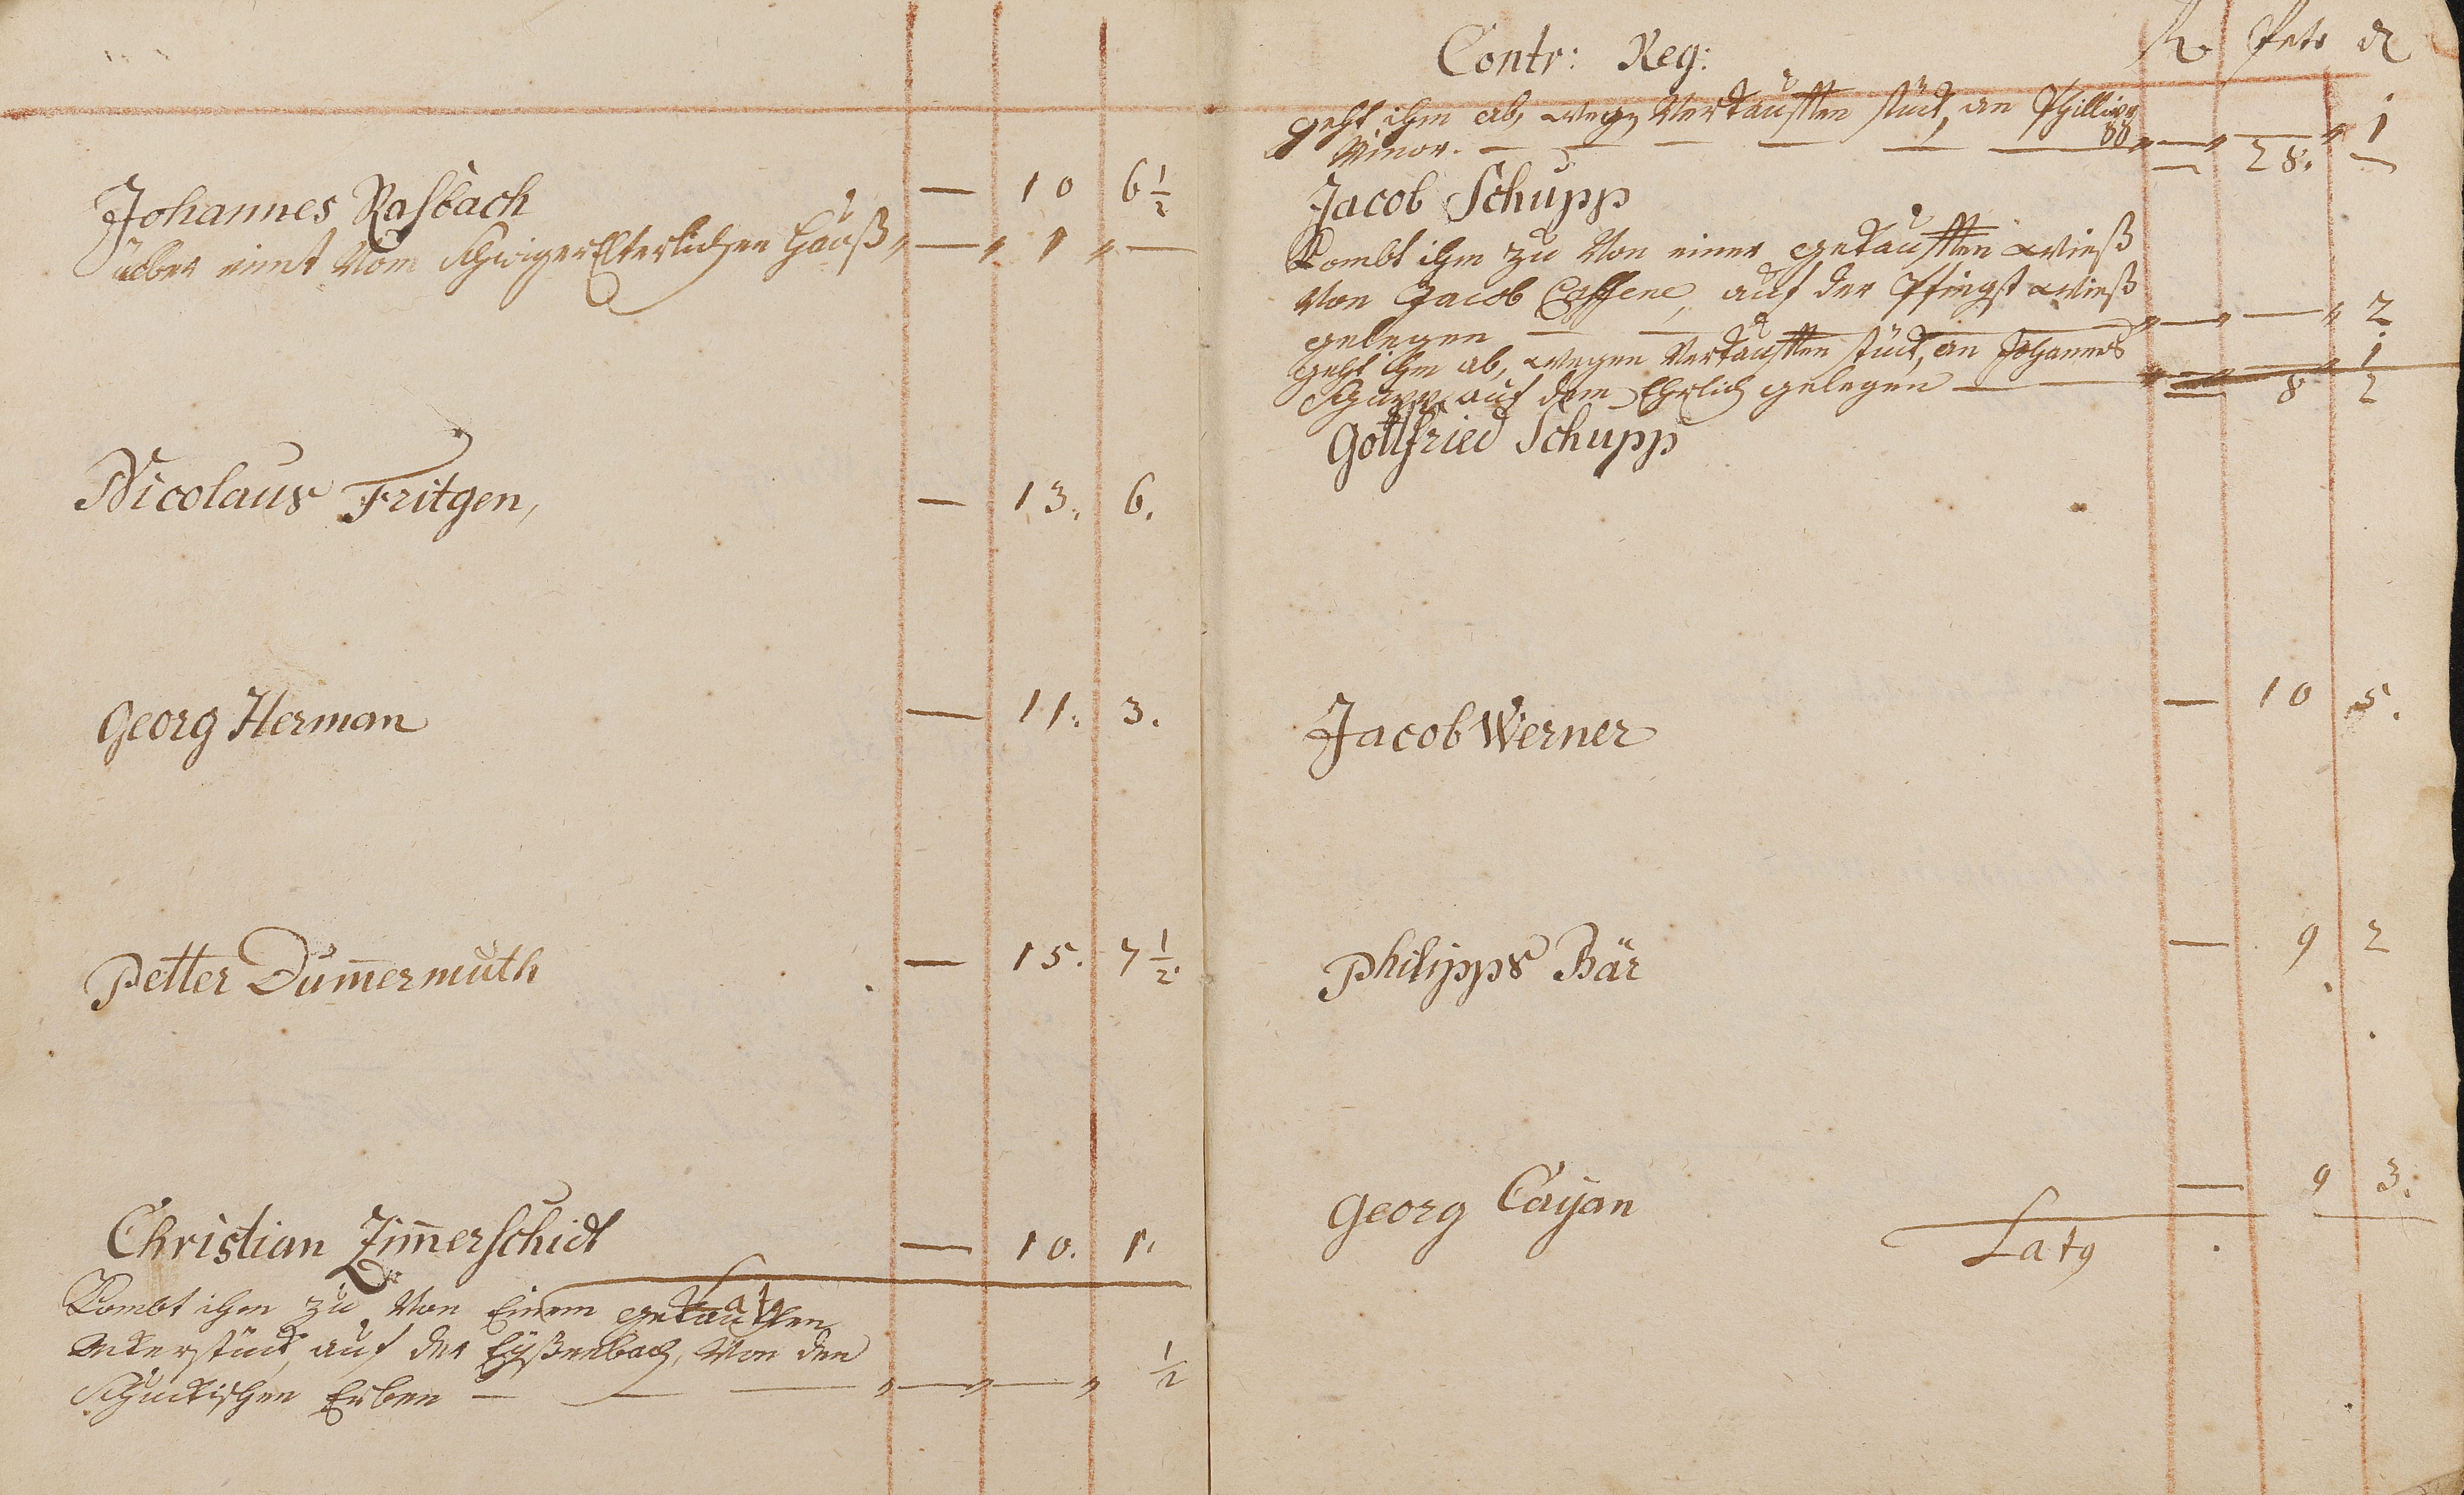 Johannes Rasbach — 10 6 1/2
über nimt Vom SchwigerElterlichen Hauß — 1 —
Nicolaus Fritgen, — 13. 6.
Georg Herman — 11. 3.
Petter Dum̄ermuth — 15. 7 1/2
Christian Zim̄erschidt — 10. 1.
Lat9
Kombt ihm zu Von Einem gekauften
Ackerstück, auf der Eyßenbach, Von den
Schuckischen Erben — — — — — 1/2
Contr: Reg:
geht ihm ab, wegen Verkaufften stück, an Phillipp
Minor. — — — — — — — — 1
Jacob Schupp — 28. —
Kombt ihm zu Von einer gekaufften wieß
Von Jacob, auf der Pfingst wieß
gelegen — — — — 2
geht ihm ab, wegen Verkaufften stück, an Johannes
Schupp auf dem Ehrlich gelegen — — — 1
Gottfried Schupp — 8 2
Jacob Werner — 10 5.
Philipps Bär — 9 2
Georg Cayan — 9 3.
Lat9